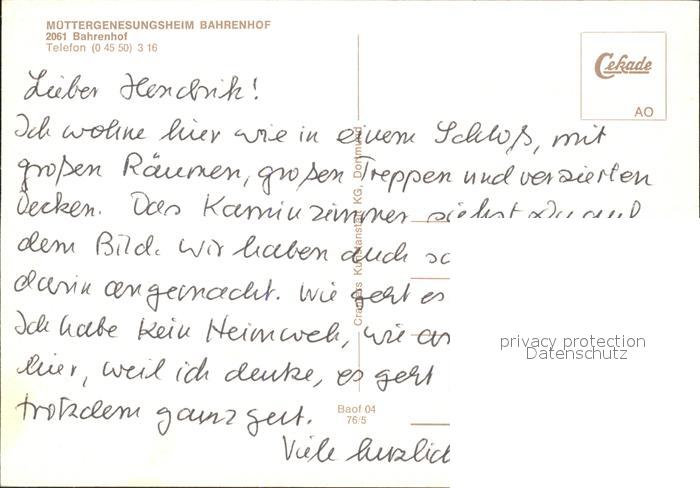 MÜTTERGENESUNGSHEIM BAHRENHOF
2061 Bahrenhof
Telefon (0 45 50) 3 16
Cekade
AO
Lieber Hendrik!
Ich wohne hier wie in einem Schloß, mit
großen Räumen, großen Treppen und verzierten
Decken. Das Kaminzimmer siehst Du auf
dem Bild. Wir haben auch
darin angemacht. Wie geht es
Ich habe kein Heimweh, wie
hier, weil ich denke, es geht
trotzdem ganz gut.
Viele herzlich
Cramers Kunstanstalt KG, Dortmund
Baof 04
76/5
privacy protection
Datenschutz